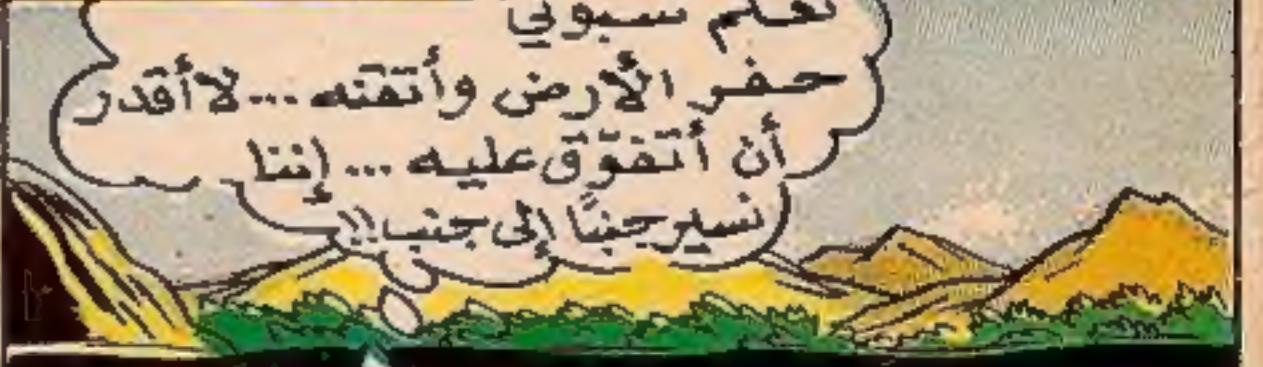 تعلم سبوني
حفر الأرض وأتقنه... لا أقدر
أن أتفوّق عليه... إننا
نسير جنبًا إلى جنب!!